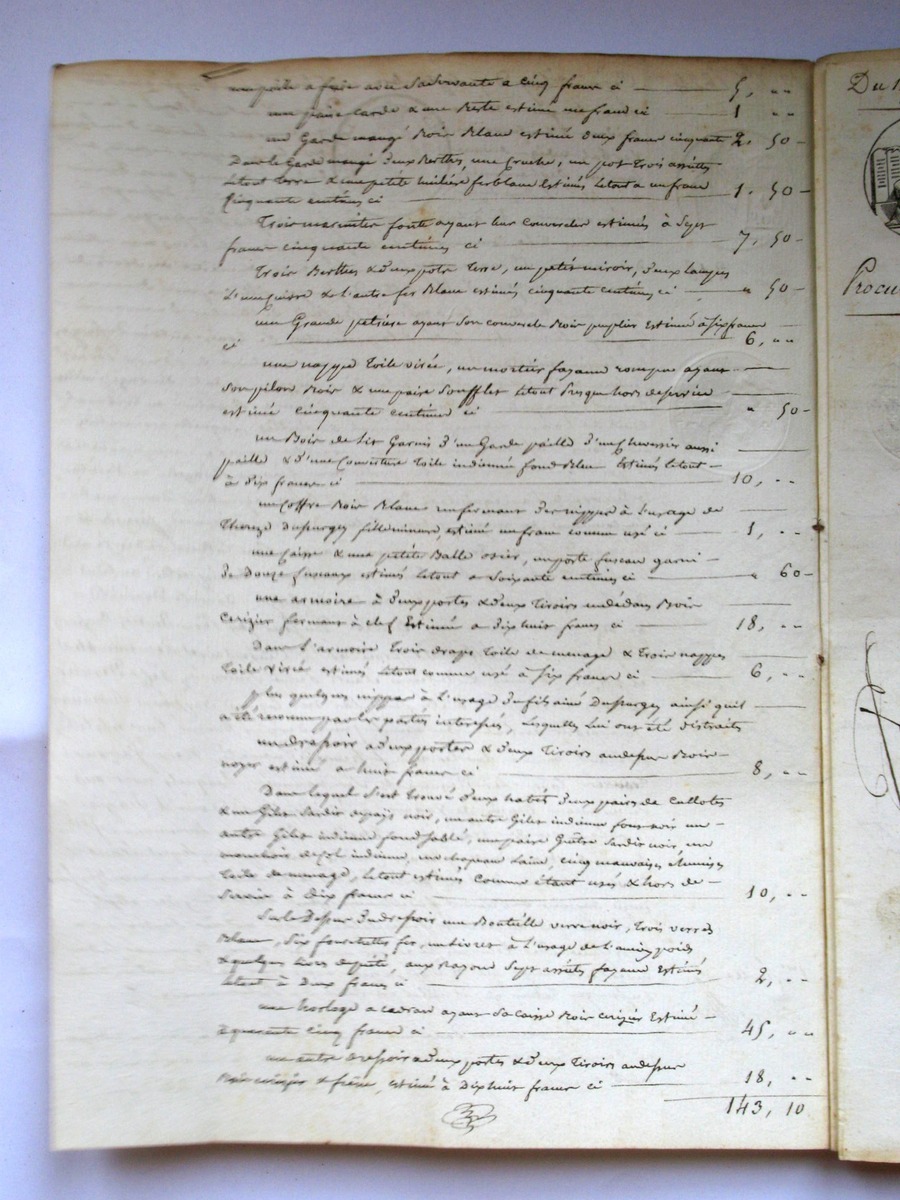 une poille a frire avec sa servante a cinq francs ci 5, "
une paire carde & une Reste estimé un franc ci 1 "
un Garde mangé Bois Blanc estimé deux francs cinquante 2, 50
Dans le Garde mangé deux Berthes une Cruche, un pot Trois assiettes
Letout Terre & une petite ferblanc Estimés Letout a un franc
Cinquante centimes ci 1, 50
Trois marmites fonte ayant leur couvercles estimés à Sept
francs cinquante centimes ci 7, 50
Trois Berthes & deux pots Terre, un petit miroir, deux lampes
L'une cuivre & l'autre fer Blanc estimés cinquante centimes ci " 50
une Grande petrière ayant son couvercle Bois peuplier Estimée à Six francs
ci 6, "
une nappe Toile virée, un mortier fayance rompue ayant
Son pilon Bois & une paire Soufflet Letout Presque hors de service
estimé cinquante centimes ci " 50
un Bois de Lit Garnis d'un Garde paille d'un Chevessier aussi
paille & d'une Couverture Toile indienne fond Bleu Estimés Letout
à Dix francs ci 10, "
un Coffre Bois Blanc renfermant des nippes à l'usage de
Thereze Dufurges fille mineure, estimé un franc comme usé ci 1, "
une Caisse & une petite Balle osier, un porte fuseau garni
de Douze fuseaux estimés Letout a Soixante centimes ci " 60
une armoire à deux portes & deux Tiroirs au dedans Bois
Cerizier fermant à clef Estimée a Dix huit francs ci 18, "
Dans L'armoire Trois draps Toile de menage & Trois nappes
Toile virée estimés Letout comme usé à Six francs ci 6, "
plus quelques nippes à L'usage du fils ainé Dufurges ainsi quil
a été reconnu par les parties interessées, Lesquelles Lui ont été distraits
un dressoir a deux portes & deux Tiroirs au dessus Bois
noyer estimé a huit francs ci 8, "
Dans lequel S'est trouvé deux deux paires de Culottes
& un Gilet Sardis noir, un autre Gilet indienne fond noir un
autre Gilet indienne fond Sablé, une paire Guêtre Sardis noir, un
mouchoir de Col indienne, un chapeau Laine, cinq mauvaises chemises
Toile de menage, Letout estimés Comme étant usés & hors de
Servir à Dix francs ci 10, "
Sur le Dessus du dressoir une Bouteille verre noir, Trois verres
Blanc, Six fourchettes fer, un Livres à L'usage de l'ancien poids
& quelques Livres de piété, aux Rayons Sept assiettes fayance Estimés
Letout à Deux francs ci 2, "
une horloge a cadran ayant Sa caisse Bois cerizier Estimé
a quarante cinq francs ci 45, "
un autre dressoir a deux portes & deux Tiroirs au dessus
Bois cerizier & frêne, estimé à Dix huit francs ci 18, "
143, 10
Procu